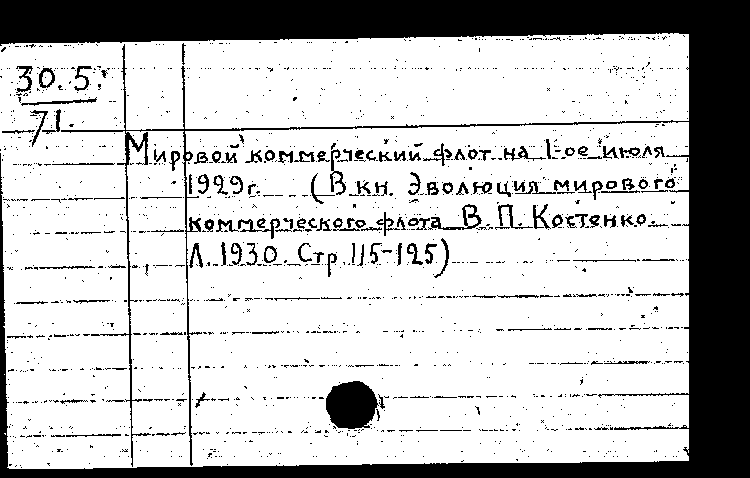 30.5.
71.
Мировой коммерческий флот на 1-ое июля
1929г. (В кн. Эволюция мирового
коммерческого флота В. П. Костенко.
Л. 1930. Стр. 115-125)